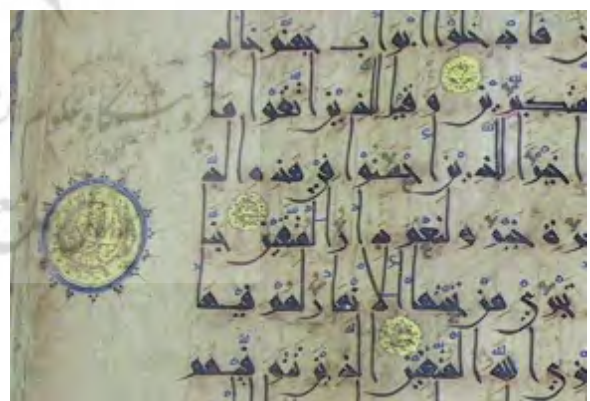 فادخلوا ابواب جهنم خالد
متكبرين وقيل للذين اتقوا ما
خيرا للذين احسنوا في هذه الد
خرة خير ولنعم دار المتقين جنا
تجري من تحتها الانهار لهم فيها
زي الله المتقين الذين تتوفيهم